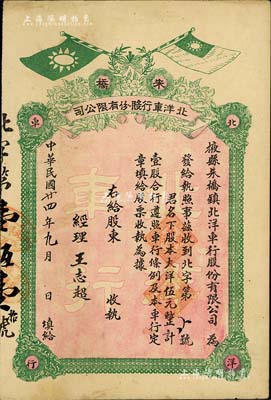 朱橋
北洋車行股份有限公司
北
車
洋
行
掖縣朱橋鎮北洋車行股份有限公司 為
發給執照事茲收到北字第 號
君名下股本大洋伍元整計
壹股合行遵照車行條例及本車行定
章填給股票收執為據
右給股東 收執
經理 王志超
中華民國廿四年九月 日 填給
北字第
號